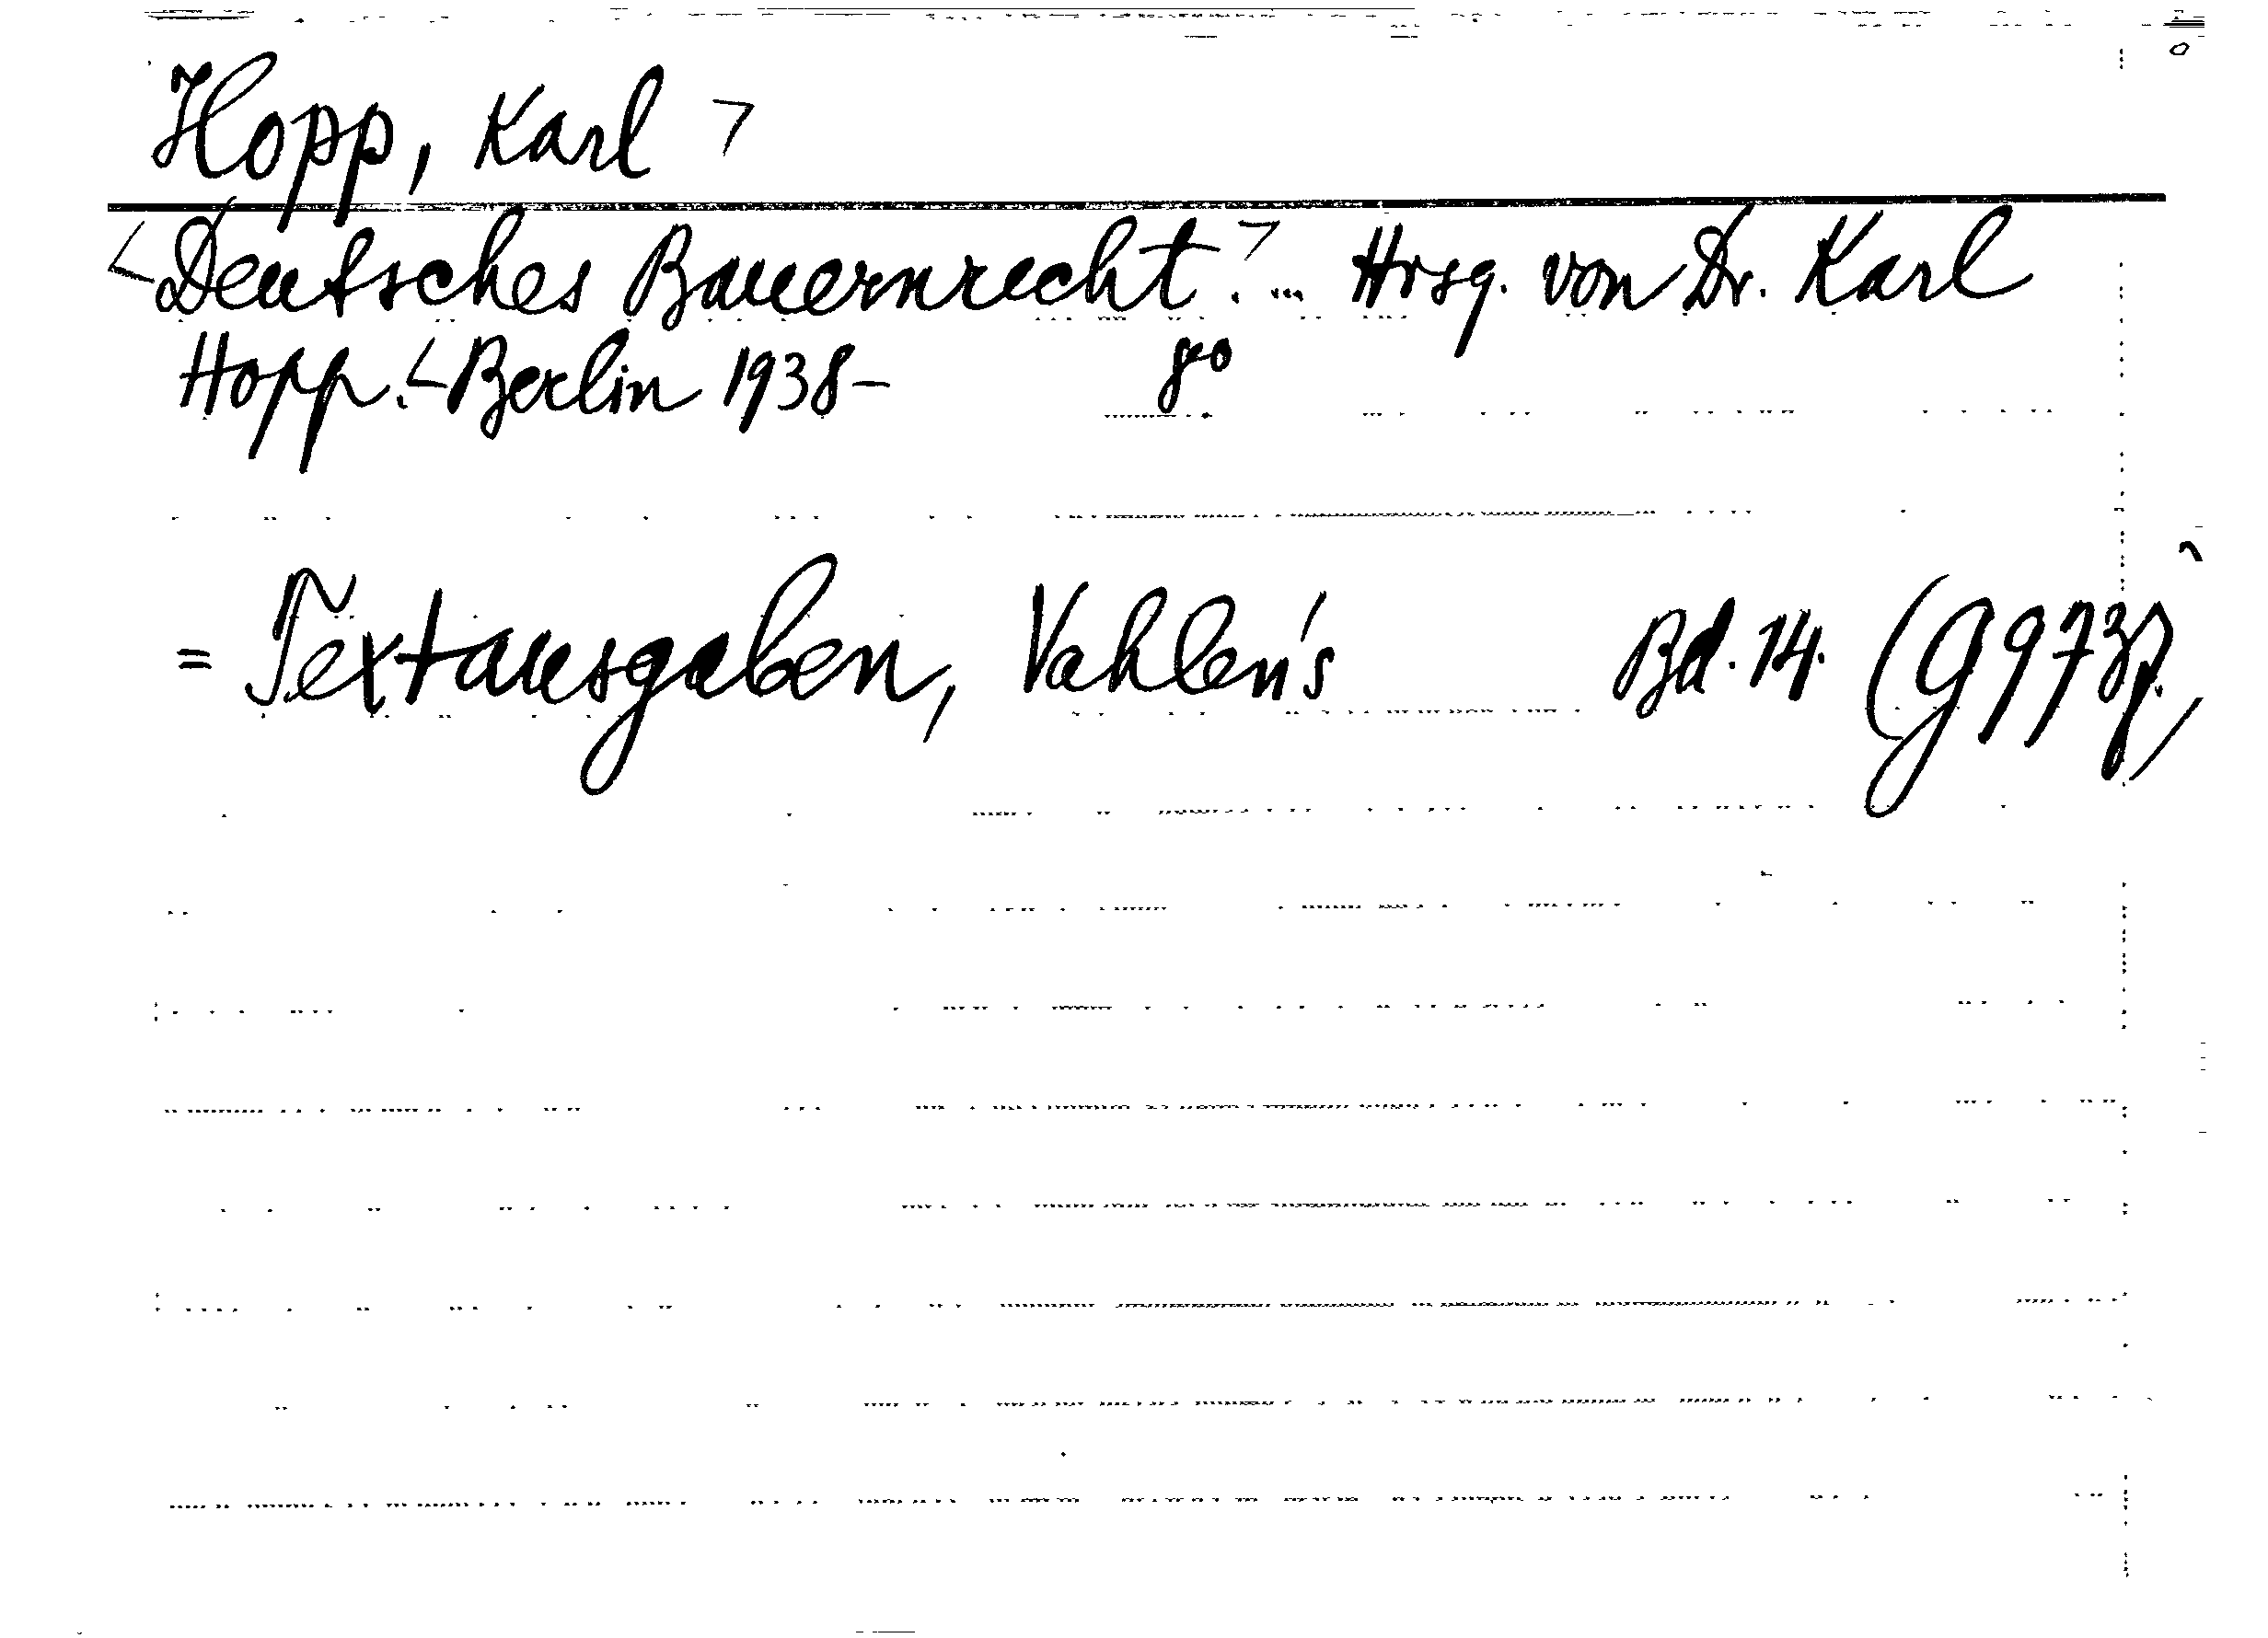 Hopp, Karl ㄱ
<Deutsches Bauernrecht.ㄱ... Hrsg. von Dr. Karl
Hopp.<Berlin 1938- 8°
= Textausgaben, Vahlen's Bd. 14. (G 973